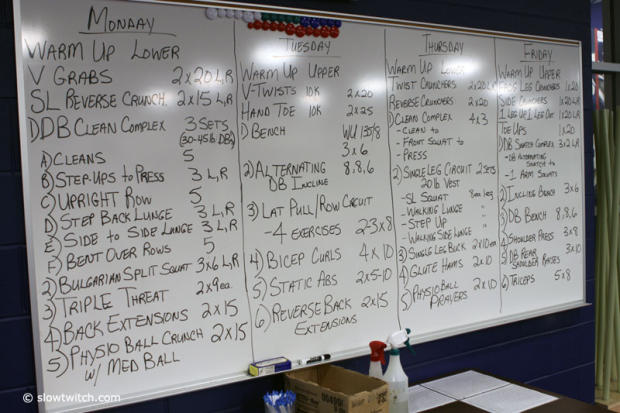 Monday
Warm Up Lower
V Grabs 2x20 L,R
SL Reverse Crunch 2x15 L,R
1) DB Clean Complex 3 Sets
(30-45lb DB)
A) Cleans 5
B) Step-Ups to Press 3 L,R
C) Upright Row 5
D) Step Back Lunge 3 L,R
E) Side to Side Lunge 3 L,R
F) Bent Over Rows 5
2) Bulgarian Split Squat 3x6 L,R
3) Triple Threat 2x9ea.
4) Back Extensions 2x15
5) Physio Ball Crunch 2x15
w/ Med Ball
Tuesday
Warm Up Upper
V-Twists 10K 2x20
Hand Toe 10K 2x25
1) Bench WU 135/8
3x6
2) Alternating 8,8,6
DB Incline
3) Lat Pull/Row Circuit
-4 Exercises 2-3x8
4) Bicep Curls 4x10
5) Static Abs 2x5-10
6) Reverse Back 2x15
Extensions
Thursday
Warm Up Lower
Twist Crunchers 2x20 L,R
Reverse Crunchers 2x20
1) Clean Complex 4x3
- Clean to
- Front Squat to
- Press
2) Single Leg Circuit 2 Sets
20lb Vest
- SL Squat 8ea leg
- Walking Lunge "
- Step Up "
- Walking Side Lunge "
3) Single Leg Buck 2x10ea
4) Glute Hams 2x10
5) Physio Ball 2x10
Prayers
Friday
Warm Up Upper
Leg Crunchers 1x20
Side Crunchers 1x20 L,R
1 Leg Up 1 Leg Out 1x20 L,R
Toe Ups 1x20
1) DB Snatch Complex 3x2 L,R
- DB Alternating
Snatch to
- 1 Arm Squats
2) Incline Bench 3x6
3) DB Bench 8,8,6
4) Shoulder Press 3x8
5) DB Rear 3x10
Shoulder Raises
6) Triceps 5x8
© slowtwitch.com